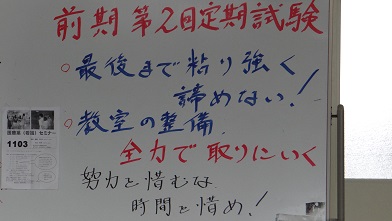 前期 第2回定期試験
○ 最後まで粘り強く
諦めない!
○ 教室の整備
全力で取りにいく
努力を惜むな
時間を惜め!
セミナー
1103